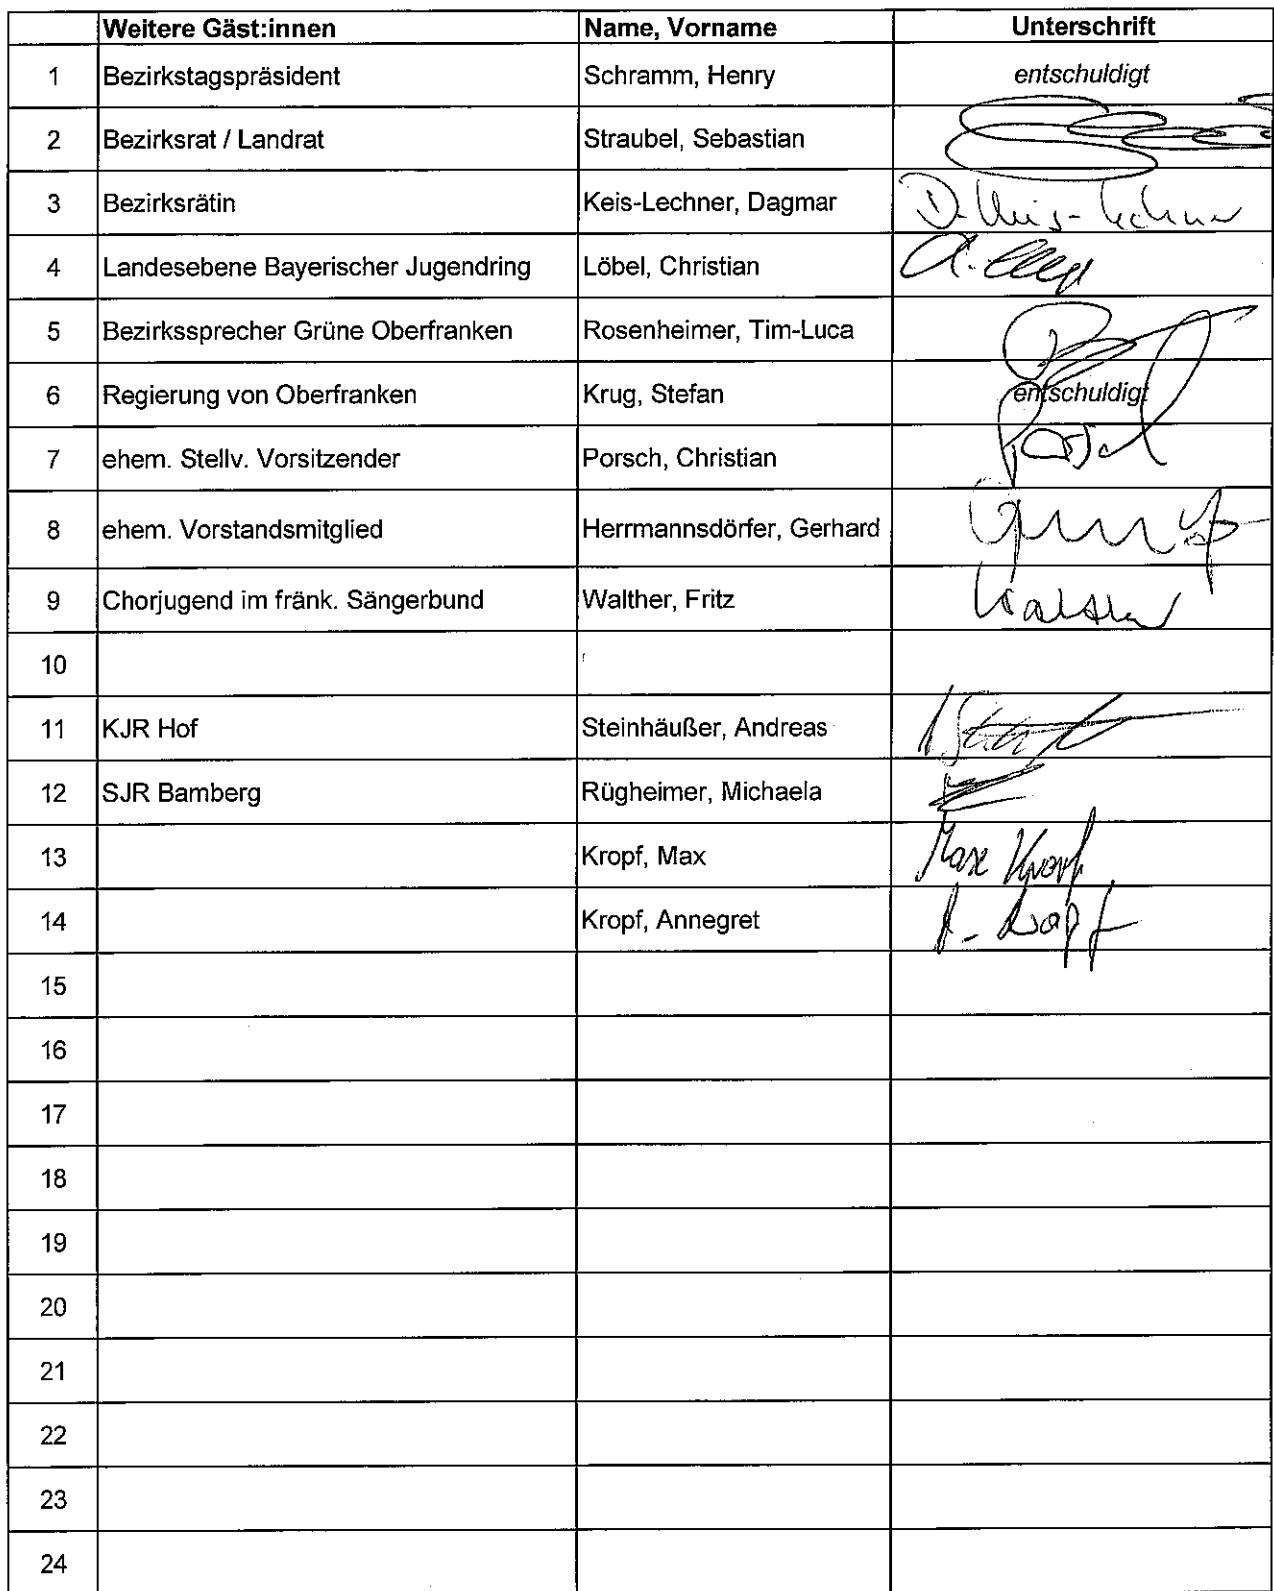 Weitere Gäst:innen Name, Vorname Unterschrift
1 Bezirkstagspräsident Schramm, Henry entschuldigt
2 Bezirksrat / Landrat Straubel, Sebastian
3 Bezirksrätin Keis-Lechner, Dagmar D. Keis-Lechner
4 Landesebene Bayerischer Jugendring Löbel, Christian
5 Bezirkssprecher Grüne Oberfranken Rosenheimer, Tim-Luca
6 Regierung von Oberfranken Krug, Stefan entschuldigt
7 ehem. Stellv. Vorsitzender Porsch, Christian Porsch
8 ehem. Vorstandsmitglied Herrmannsdörfer, Gerhard
9 Chorjugend im fränk. Sängerbund Walther, Fritz Walther
10
11 KJR Hof Steinhäußer, Andreas
12 SJR Bamberg Rügheimer, Michaela
13 Kropf, Max Max Kropf
14 Kropf, Annegret A. Kropf
15
16
17
18
19
20
21
22
23
24